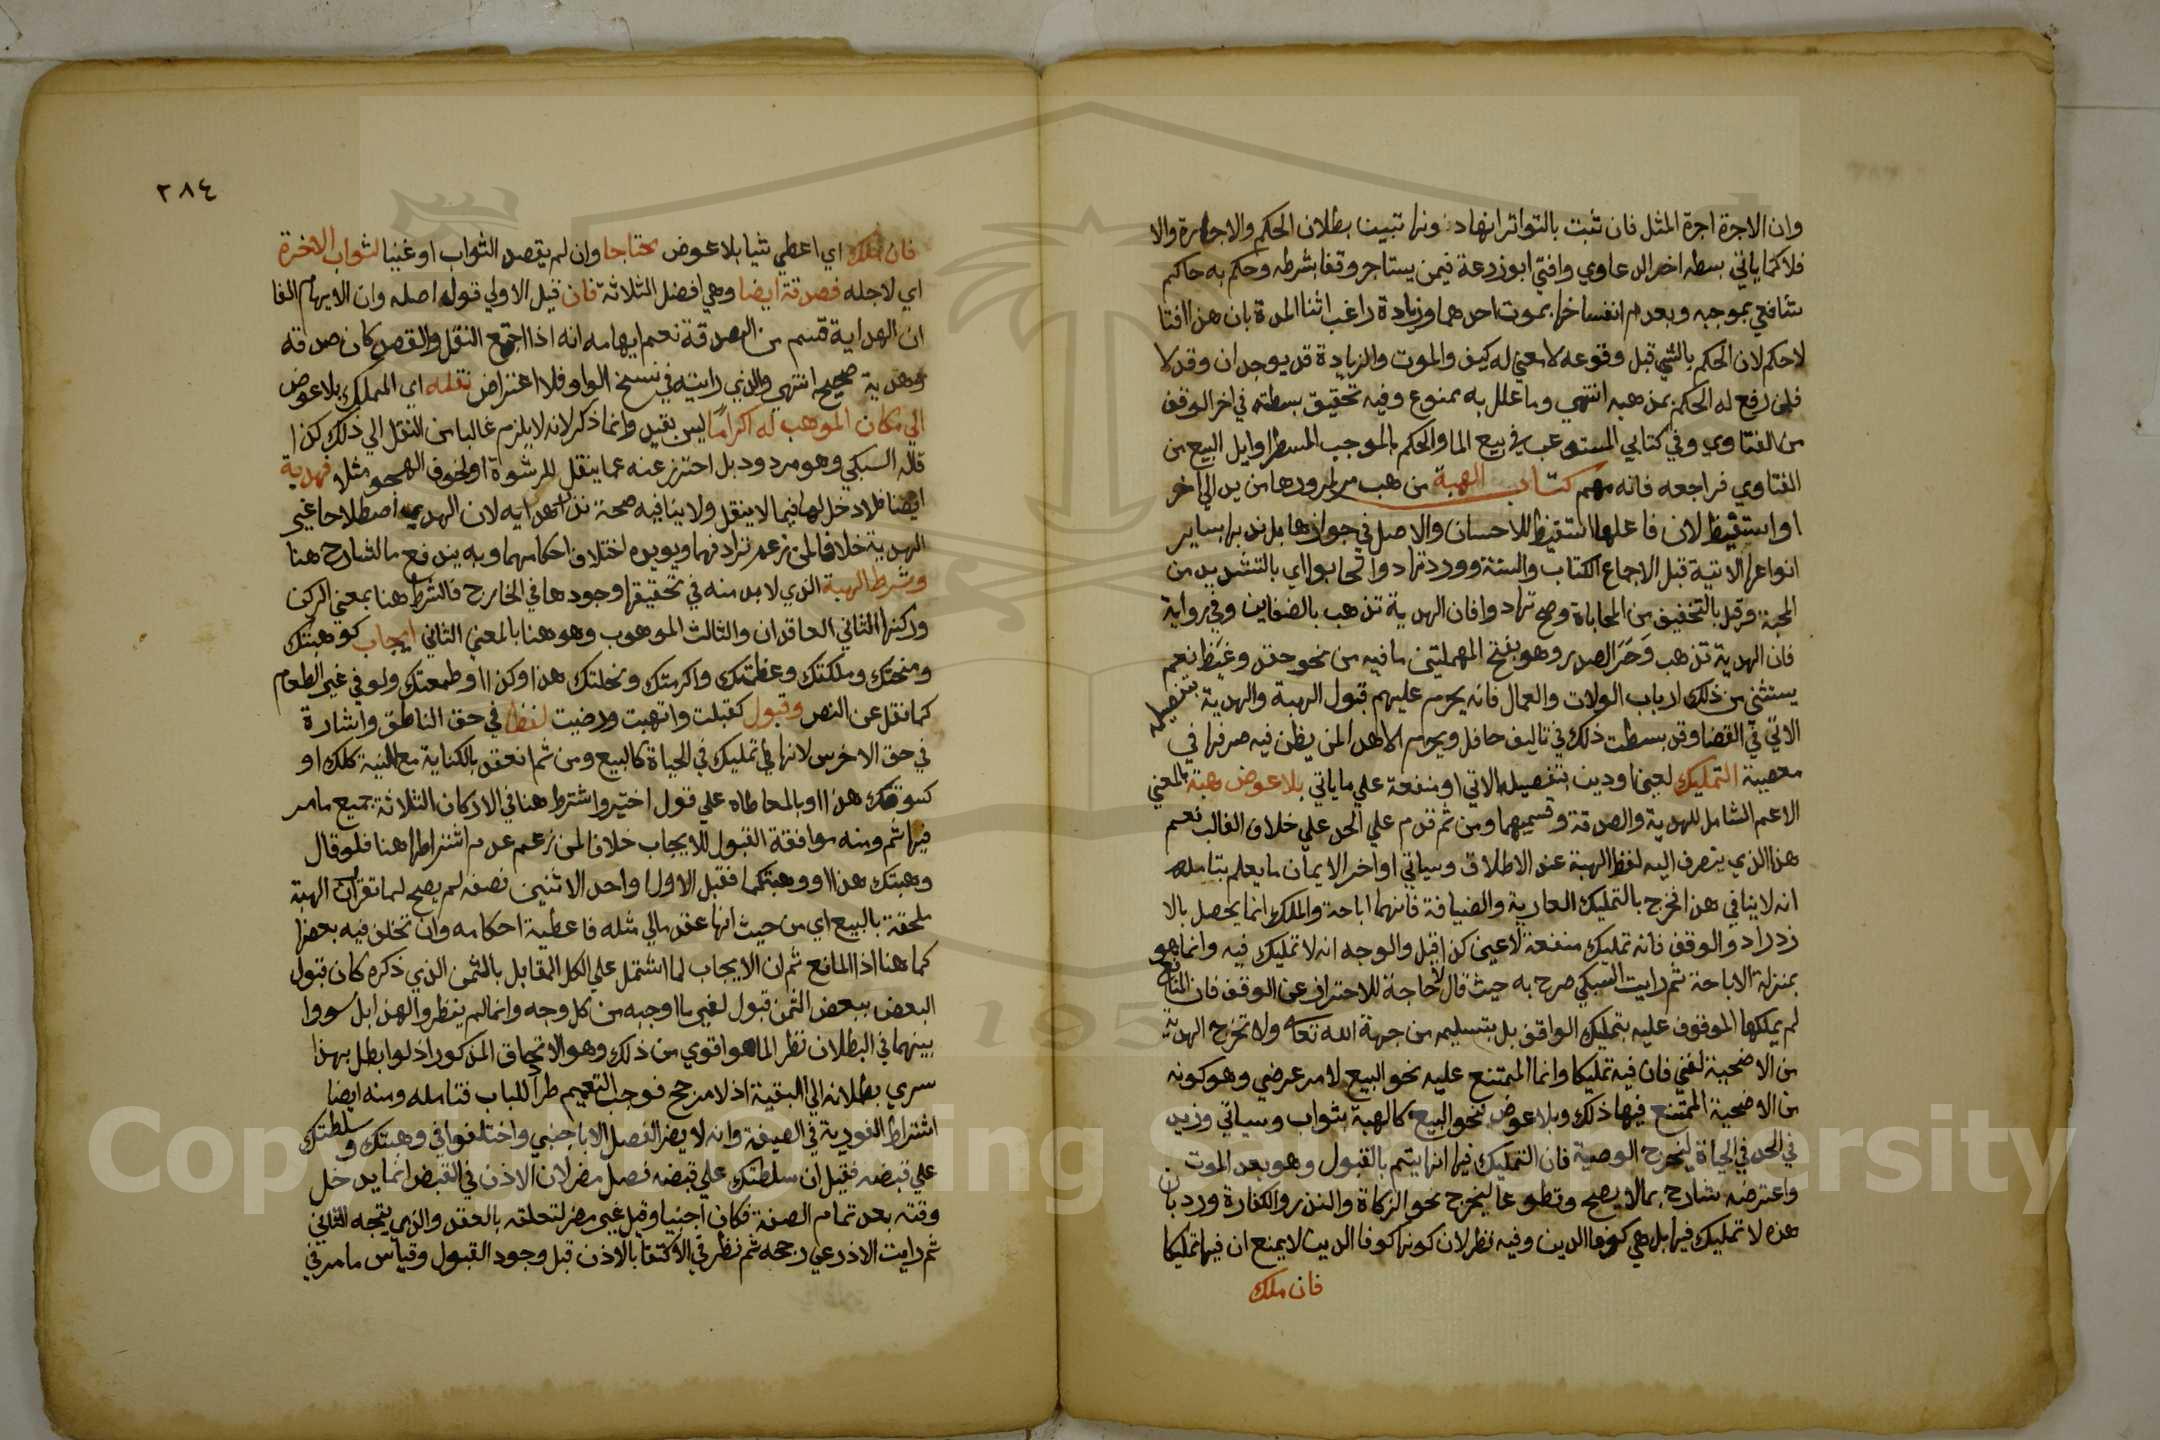 وان الاجرة اجرة المثل فان ثبت بالتواتر انها دونها تبين بطلان الحكم والاجارة والا
فلا كما ياتي بسطه اخر الدعاوي وافتي ابو زرعة فيمن يستاجر وقفا بشرطه وحكم به حاكم
شافعي بموجبه وبعدم انفساخها بموت احدهما وزيادة راغب اثنا المدة بان هذا افتا
لا حكم لان الحكم بالشي قبل وقوعه لا معني له كيف والموت والزيادة قد يوجدان وقد لا
فلمن رفع له الحكم بمذهبه انتهي وما علل به ممنوع وفيه تحقيق بسطته في اخر الوقف
من الفتاوي وفي كتابي المستوعب في بيع الما والحكم بالموجب المسطر اوايل البيع من
الفتاوي فراجعه فانه مهم كتاب الهبة من هب مر لمرورها من يد الي اخر
او استيقظ لان فاعلها استيقظ للاحسان والاصل في جوازها بل ندبها بساير
انواعها الاتية قبل الاجماع الكتاب والسنة وورد تهادوا تحابوا اي بالتشديد من
المحبة وقيل بالتخفيف من المحاباة وصح تهادوا فان الهدية تذهب بالضغاين وفي رواية
فان الهدية تذهب وَحَرَ الصدر وهو بفتح المهملتين ما فيه من نحو حقد وغيظ نعم
يستثني من ذلك ارباب الولات والعمال فانه يحرم عليهم قبول الهبة والهدية بتفصيله
الاتي في القضا وقد بسطت ذلك في تاليف حافل ويحرم الاهدا لمن يظن فيه صرفها في
معصية التمليك لعين او دين بتفصيله الاتي او منفعة علي ما ياتي بلا عوض هبة بالمعني
الاعم الشامل للهدية والصدقة وقسيمهما ومن ثم قدم علي الحد علي خلاف الغالب نعم
هذا الذي ينصرف اليه لفظ الهبة عند الاطلاق وسياتي اواخر الايمان ما يعلم بتامله
انه لا ينافي هذا فخرج بالتمليك العارية والضيافة فانهما اباحة والملك انما يحصل بالا
زدراد والوقف فانه تمليك منفعة لا عين كذا قيل والوجه انه لا تمليك فيه وانما هو
بمنزلة الاباحة ثم رايت السبكي صرح به حيث قال لا حاجة للاحتراز عن الوقف فان المنافع
لم يملكها الموقوف عليه بتمليك الواقف بل بتسليمه من جهة الله تعالى ولا تخرج الهدية
من الاضحية لغني فان فيه تمليكا وانما الممتنع عليه نحو البيع لامر عرضي وهو كونه
من الاضحية الممتنع فيها ذلك وبلا عوض نحو البيع كالهبة بثواب وسياتي وزيد
في الحد في الحياة ليخرج الوصية فان التمليك فيها انما يتم بالقبول وهو بعد الموت
واعترضه شارح بما لا يصح وتطوعا ليخرج نحو الزكاة والنذر والكفارة ورد بان
هذه لا تمليك فيها بل هي كوفا الدين وفيه نظر لان كونها كوفا الدين لا يمنع ان فيها تمليكا
فان ملك
٢٨٤
فان ملك اي اعطي شيا بلا عوض محتاجا وان لم يقصد الثواب او غنيا لثواب الاخرة
اي لاجله فصدقة ايضا وهي افضل الثلاثة فان قيل الاولي قوله اصله وان لا يهام الفا
ان الهداية قسم من الصدقة نعم ايهامه انه اذا اجتمع النقل والقصد كان صدقة
وهدية صحيح انتهي والذي رايته في نسخ الواو فلا اعتراض نقله اي المملك بلا عوض
الي مكان الموهب له اكرامًا ليس بقيد وانما ذكر لانه لا يلزم غالبا من النقل الي ذلك كذا
قاله السبكي وهو مردود بل احترز عنه عما ينقل للرشوة او لخوف الهجو مثلا فهدية
ايضا فلا دخل لها فيما لا ينقل ولا ينافيه صحة نذر اهدايه لان الهدي اصطلاحا غير
الهدية خلافا لمن زعم ترادفهما ويويده اختلاف احكامهما وبه يندفع ما لشارح هنا
وشرط الهبة الذي لا بد منه في تحقيقها وجودها في الخارج فالشرط هنا بمعني الركن
وركنها الثاني العاقدان والثالث الموهوب وهو هنا بالمعني الثاني ايجاب كوهبتك
ومنحتك وملكتك وعظمتك واكرمتك ونحلتك هذا وكذا اطعمتك ولو في غير الطعام
كما نقل عن النص وقبول كقبلت واتهبت ورضيت لفظا في حق الناطق واشارة
في حق الاخرس لانها في تمليك في الحياة كالبيع ومن ثم انعقد بالكناية مع النية كلك او
كسوتك هذا او بالمعاطاه علي قول اختير واشترط هنا في الاركان الثلاثة جميع ما مر
فيها ثم ومنه موافقة القبول للايجاب خلافا لمن زعم عدم اشتراطها هنا فلو قال
وهبتك هذا او وهبتكما فقبل الاول او احد الاثنين نصفه لم يصح لما تقرر ان الهبة
ملحقة بالبيع اي من حيث انها عقد مالي مثله فاعطيه احكامه وان تخلف فيه بعضها
كما هنا اذ المانع ثم ان الايجاب لما اشتمل علي الكل المقابل بالثمن الذي ذكره كان قبول
البعض ببعض الثمن قبول لغير ما اوجبه من كل وجه وانما لم ينظروا لهذا بل سووا
بينهما في البطلان نظرا لما هو اقوي من ذلك وهو الالحاق المذكور اذ لو ابطل بهذا
سري بطلانه الي البقية اذ لا مرجح فوجب التعميم طردا للباب فتامله ومنه ايضا
اشتراط الفورية في الصيغة وانه لا يضر الفصل الا باجنبي واختلفوا في وهبتك وسلطتك
علي قبضه فقيل ان سلطتك علي قبضه فصل مضر لان الاذن في القبض انما يدخل
وقته بعد تمام الصيغة فكان اجنبيا وقيل غير مضر لتعلقه بالعقد والذي يتجه الثاني
ثم رايت الاذرعي رجحه ثم نظر في الاكتفا بالاذن قبل وجود القبول وقياس ما مر في